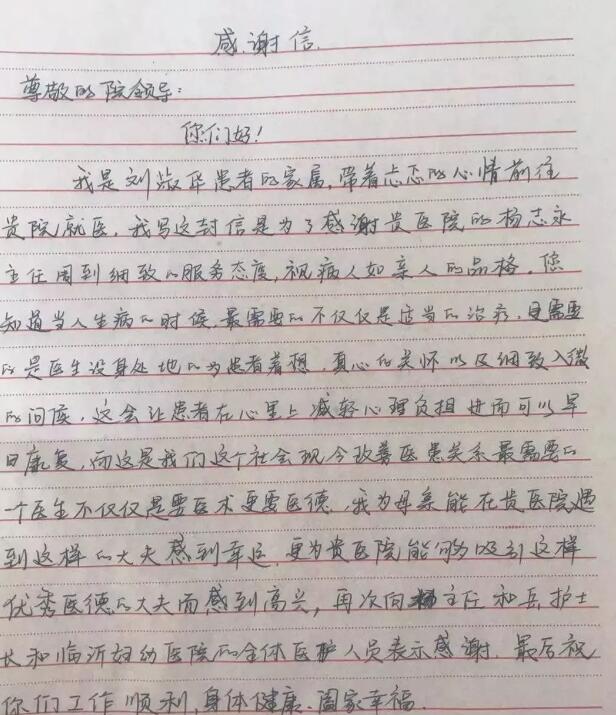 感谢信
尊敬的院领导:
你们好!
我是刘淑华患者的家属,带着忐忑的心情前往
贵院就医,我写这封信是为了感谢贵医院的杨志永
主任周到细致的服务态度,视病人如亲人的品格。您
知道当人生病的时候,最需要的不仅仅是适当的治疗,更需要
的是医生设身处地的为患者着想,真心的关怀以及细致入微
的问候,这会让患者在心里上减轻心理负担进而可以早
日康复,而这是我们这个社会现今改善医患关系最需要的
一个医生不仅仅是要医术更要医德,我为母亲能在贵医院遇
到这样的大夫感到幸运,更为贵医院能够吸引这样
优秀医德的大夫而感到高兴,再次向杨主任和岳护士
长和临沂妇幼医院的全体医护人员表示感谢,最后祝
你们工作顺利,身体健康、阖家幸福.